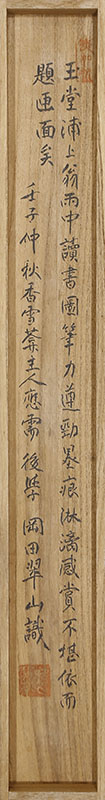 玉堂浦上翁雨中讀書圖筆力遒勁墨痕淋漓感賞不堪依而
題画面矣
壬子仲秋香雪葊主人應需後學岡田翠山識